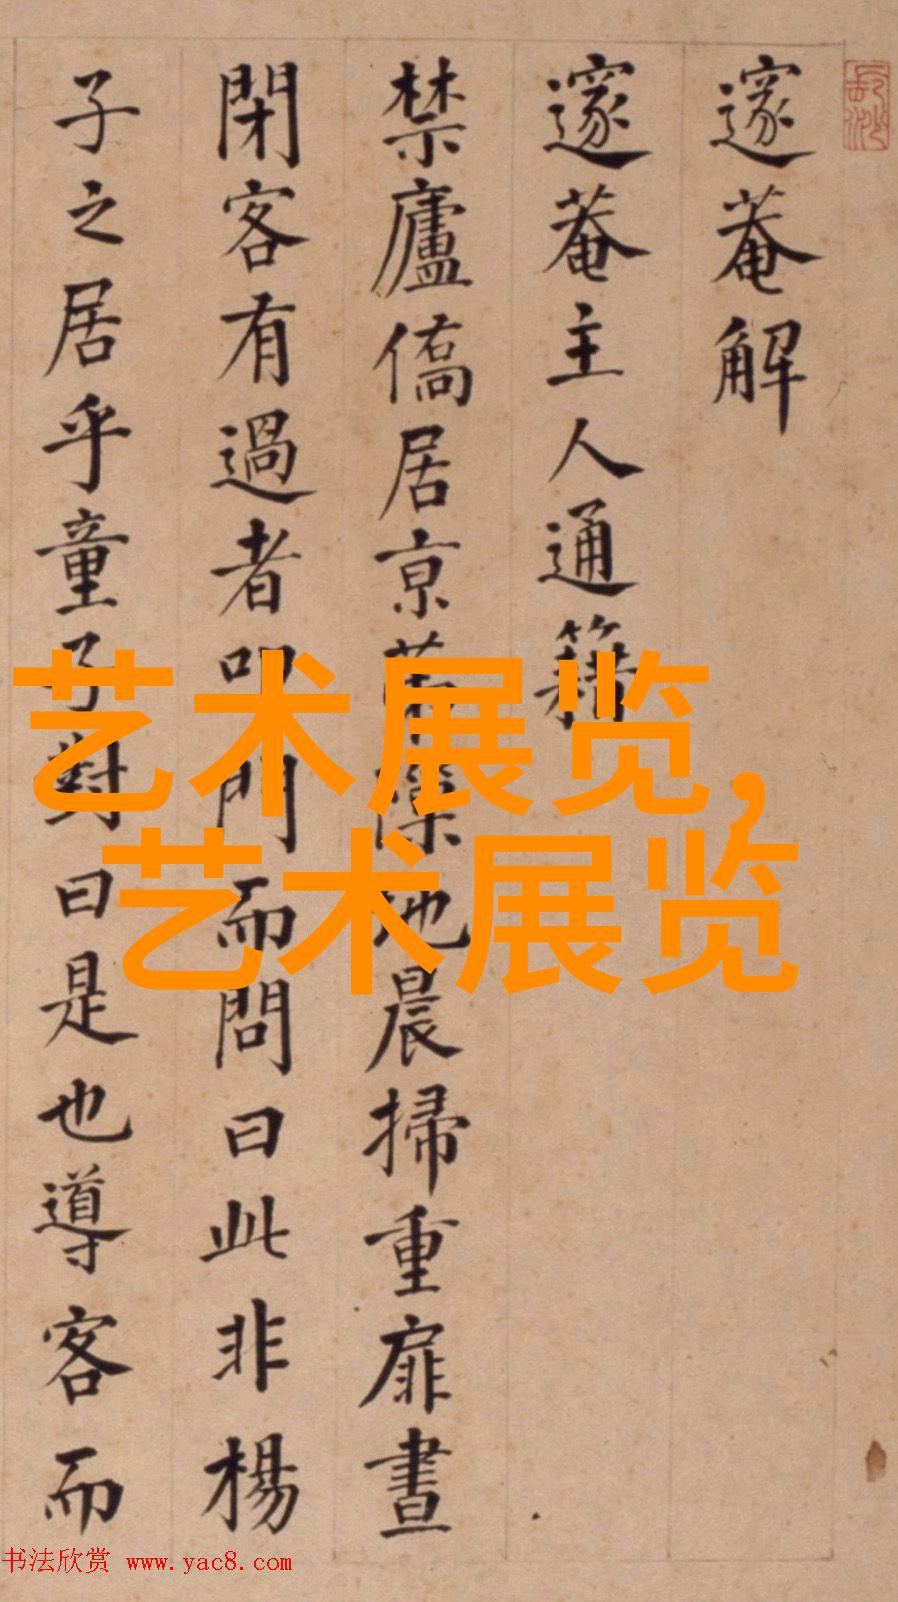 邃菴解
邃菴主人通籍
禁廬僑居亰隙地晨掃重扉晝
閉客有過者叩門而問曰此非楊
子之居乎童子對曰是也導客而
艺术展览，
艺术展览
书法欣赏 www.yac8.com